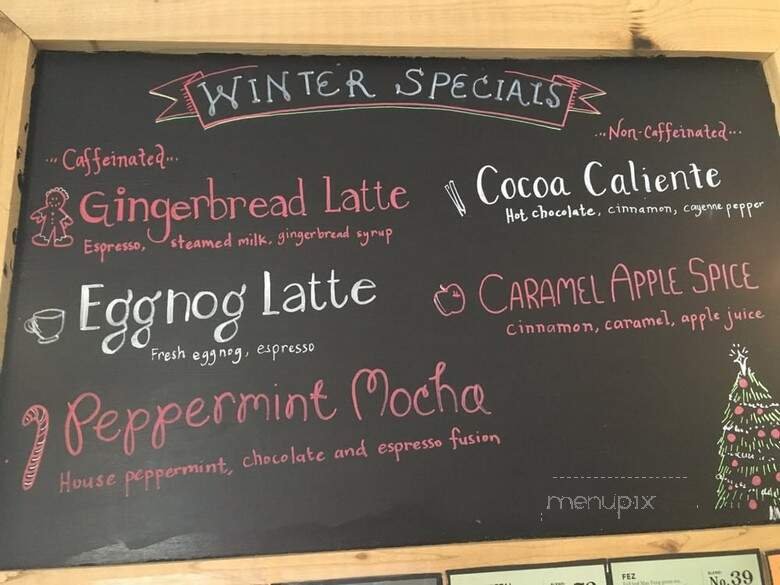 WINTER SPECIALS
... Caffeinated...
Gingerbread Latte
Espresso, steamed milk, gingerbread syrup
Eggnog Latte
Fresh eggnog, espresso
Peppermint Mocha
House peppermint, chocolate and espresso fusion
...Non-Caffeinated...
Cocoa Caliente
Hot chocolate, cinnamon, cayenne pepper
CARAMEL APPLE SPICE
cinnamon, caramel, apple juice
menupix
FEZ
No.39